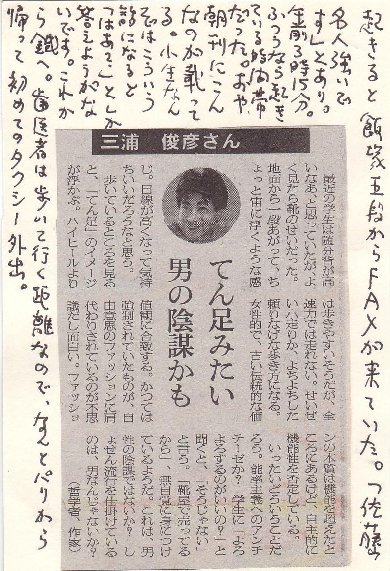 起きると飯塚五段からFAXが来ていた。「佐藤
名人強いで
す」とあり。
ふつうなら起き
ている時間帯
だった。おや
朝刊にこん
なのが載って
る。小生なん
ぞはこういう
話になると
「はあて」としか
答えようがな
いです。これか
ら銀へ。歯医者は歩いて行く距離なので、なんとパリから
帰って初めてのタクシー外出。
三浦 俊彦さん
てん足みたい
男の陰謀かも
最近の学生は随分背が高
いなあ、と思っていたが、よ
く見たら靴のせいだった。
地面から一段あがって、ち
ょっと宙に浮くような感
じ。目線が高くなって気持
ちいいだろうなと思う。
歩いているところを見る
と、「てん足」のイメージ
が浮かぶ。ハイヒールより
は歩きやすいそうだが、全
速力では走れない。せいぜ
い小走りか、よちよちした
頼りなげな歩き方になる。
女性的で、古い伝統的な価
値観に合致する。かつては
強制されていたものが、自
由意思のファッションに肩
代わりされているのが不思
議だし面白い。ファッショ
ンの本質は機能を超えたと
ころにあるけど、自主的に
機能性を否定している。
いったいどういうことだ
ろう。能率主義へのアンチ
テーゼか?学生に「よろ
よろするのがいいの?」と
聞くと、「そうじゃない」
と言う。「靴屋で売ってる
から」、無自覚に身につけ
ているようだ。これは、男
性の陰謀ではないか?し
ょせん流行を仕掛けている
のは、男なんじゃないか?
(哲学者、作家)